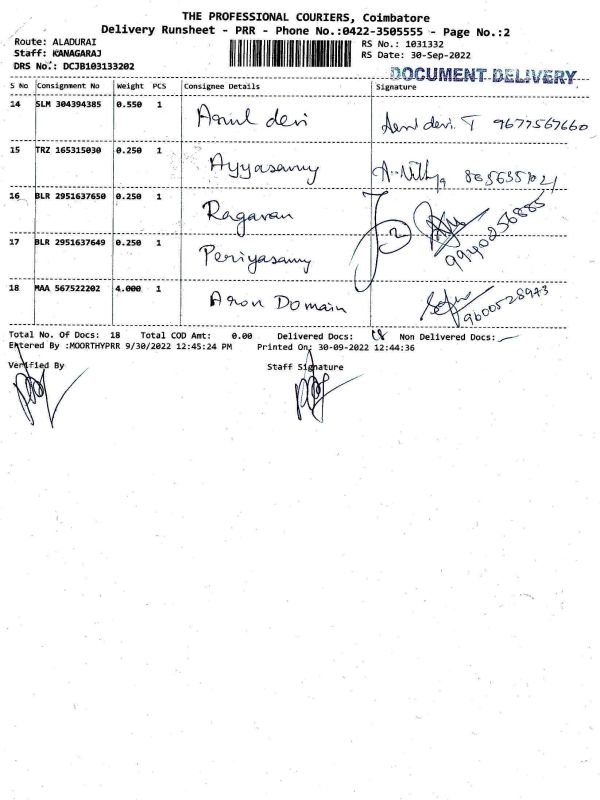 THE PROFESSIONAL COURIERS, Coimbatore
Delivery Runsheet - PRR - Phone No.:0422-3505555 - Page No.:2
Route: ALADURAI RS No.: 1031332
Staff: KANAGARAJ RS Date: 30-Sep-2022
DRS No.: DCJB103133202 DOCUMENT DELIVERY
S No Consignment No Weight PCS Consignee Details Signature
14 SLM 304394385 0.550 1 Arul devi Arul devi. T 9677567660
15 TRZ 165315030 0.250 1 Ayyasamy
16 BLR 2951637650 0.250 1 Ragavan
17 BLR 2951637649 0.250 1 Periyasamy 9940256885
18 MAA 567522202 4.000 1 Aron Domain 9600528943
Total No. Of Docs: 18 Total COD Amt: 0.00 Delivered Docs: 18 Non Delivered Docs:
Entered By :MOORTHYPRR 9/30/2022 12:45:24 PM Printed On: 30-09-2022 12:44:36
Verified By Staff Signature